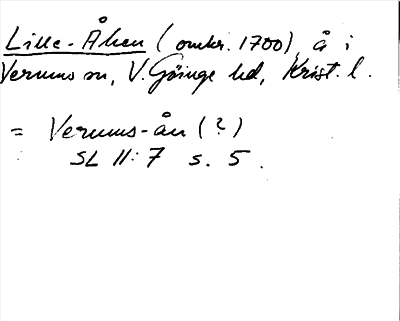 Lille-Åhen (omkr. 1700), å i
Verums sn, V. Göinge hd, Krist. l.
= Verums-ån (?)
SL II:7 s. 5.